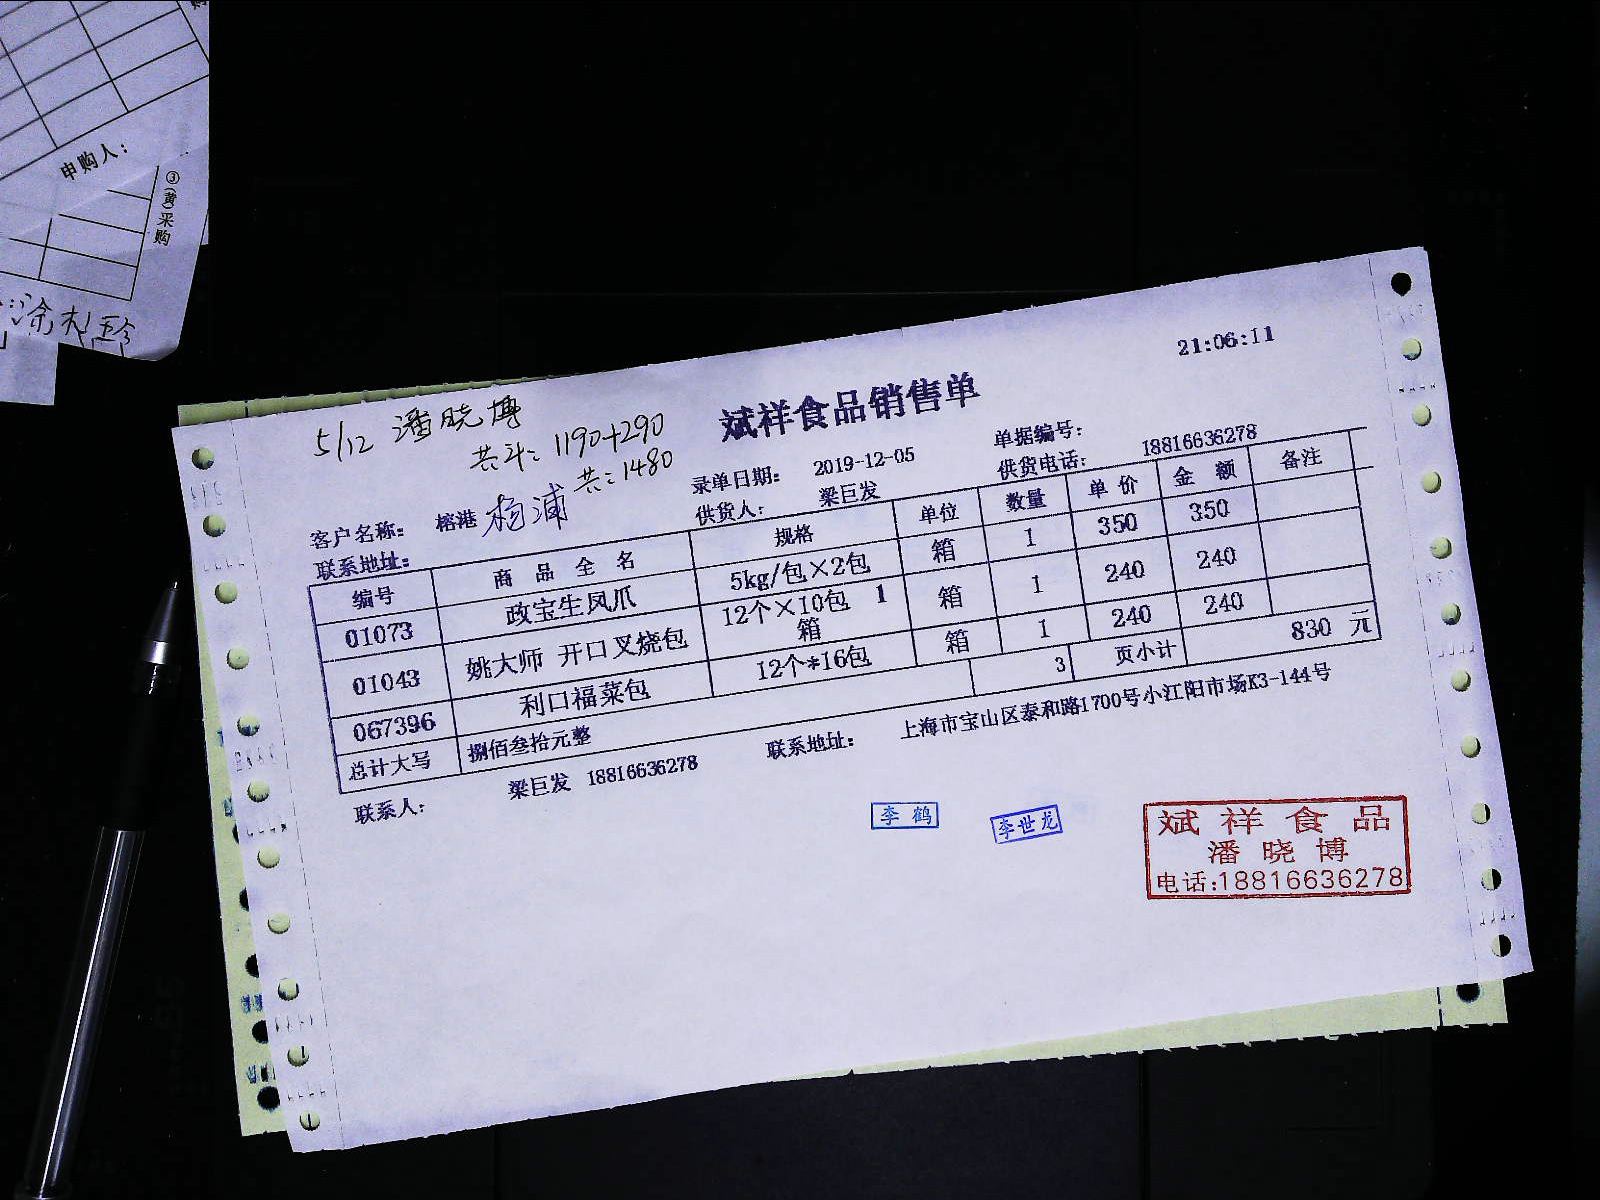 申购人：
③(黄)采购
21:06:11
5/12 潘晓博
共斗：1190+290
共：1480
斌祥食品销售单
录单日期： 2019-12-05 单据编号：
客户名称： 榕港 杨浦 供货人： 梁巨发 供货电话： 18816636278
联系地址：
编号 商品全名 规格 单位 数量 单价 金额 备注
01073 政宝生凤爪 5kg/包×2包 箱 1 350 350
01043 姚大师 开口叉烧包 12个×10包 1箱 箱 1 240 240
067396 利口福菜包 12个*16包 箱 1 240 240
总计大写 捌佰叁拾元整 3 页小计 830 元
联系人： 梁巨发 18816636278 联系地址： 上海市宝山区泰和路1700号小江阳市场K3-144号
李鹤
李世龙
斌祥食品
潘晓博
电话:18816636278